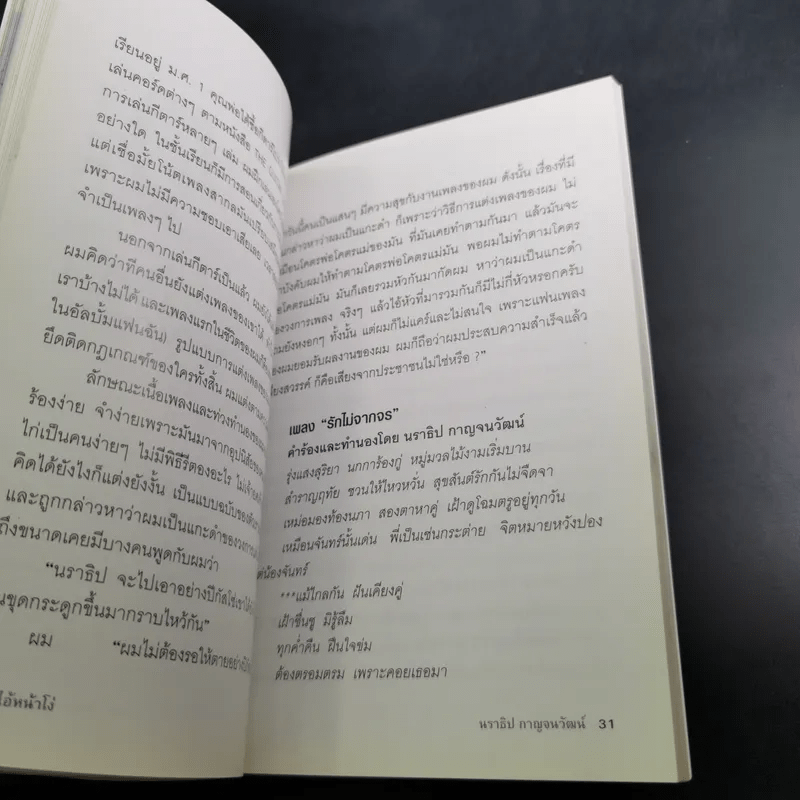 เรียนอยู่ ม.ศ. 1 คุณพ่อได้ซื้อ
เล่นคอร์ดต่างๆ ตามหนังสือ THE
การเล่นกีตาร์หลายๆ เล่ม ผมฝึก
อย่างใด ในชั้นเรียนก็มีการสอนเกี่ยวกับ
แต่เชื่อมั้ยโน้ตเพลงสากลมันเปรียบ
เพราะผมไม่มีความชอบเอาเสียเลย
จำเป็นเพลงๆ ไป
นอกจากเล่นกีตาร์เป็นแล้ว
ผมคิดว่าทีคนอื่นยังแต่งเพลงของเขาได้
เราบ้างไม่ได้ และเพลงแรกในชีวิตของผม
ในอัลบั้มแฟนฉัน) รูปแบบการแต่งเพลง
ยึดติดกฎเกณฑ์ของใครทั้งสิ้น ผมแต่งตาม
ลักษณะเนื้อเพลงและท่วงทำนองของ
ร้องง่าย จำง่ายเพราะมันมาจากอุปนิสัย
ไก่เป็นคนง่ายๆ ไม่มีพิธีรีตองอะไร
คิดได้ยังไงก็แต่งยังงั้น เป็นแบบฉบับของ
และถูกกล่าวหาว่าผมเป็นแกะดำของวงการ
ถึงขนาดเคยมีบางคนพูดกับผมว่า
“นราธิป จะไปเอาอย่างปีกัสโซ่
นขุดกระดูกขึ้นมากราบไหว้กัน”
ผม “ผมไม่ต้องรอให้ตายอย่าง
ไอ้หน้าโง่
วันนี้คนเป็นแสนๆ มีความสุขกับงานเพลงของผม ดังนั้น เรื่องที่มี
กล่าวหาว่าผมเป็นแกะดำ ก็เพราะว่าวิธีการแต่งเพลงของผม ไม่
เหมือนโคตรพ่อโคตรแม่ของมัน ที่มันเคยทำตามกันมา แล้วมันจะ
บังคับผมให้ทำตามโคตรพ่อโคตรแม่มัน พอผมไม่ทำตามโคตร
โคตรแม่มัน มันก็เลยรวมหัวกันมากัดผม หาว่าผมเป็นแกะดำ
ของวงการเพลง จริงๆ แล้วไอ้หัวที่มารวมกันก็มีไม่กี่หัวหรอกครับ
ยังหงอกๆ ทั้งนั้น แต่ผมก็ไม่แคร์และไม่สนใจ เพราะแฟนเพลง
ของผมยอมรับผลงานของผม ผมก็ถือว่าผมประสบความสำเร็จแล้ว
เสียงสวรรค์ ก็คือเสียงจากประชาชนไม่ใช่หรือ ?”
เพลง “รักไม่จากจร”
คำร้องและทำนองโดย นราธิป กาญจนวัฒน์
รุ่งแสงสุริยา นกการ้องกู่ หมู่มวลไม้งามเริ่มบาน
สำราญฤทัย ชวนให้ไหวหวั่น สุขสันต์รักกันไม่จืดจา
เหม่อมองท้องนภา สองตาหาคู่ เฝ้าดูโฉมตรูอยู่ทุกวัน
เหมือนจันทร์นั้นเด่น พี่เป็นเช่นกระต่าย จิตหมายหวังปอง
แต่น้องจันทร์
***แม้ไกลกัน ฝันเคียงคู่
เฝ้าชื่นชู มิรู้ลืม
ทุกค่ำคืน ฝืนใจข่ม
ต้องตรอมตรม เพราะคอยเธอมา
นราธิป กาญจนวัฒน์ 31